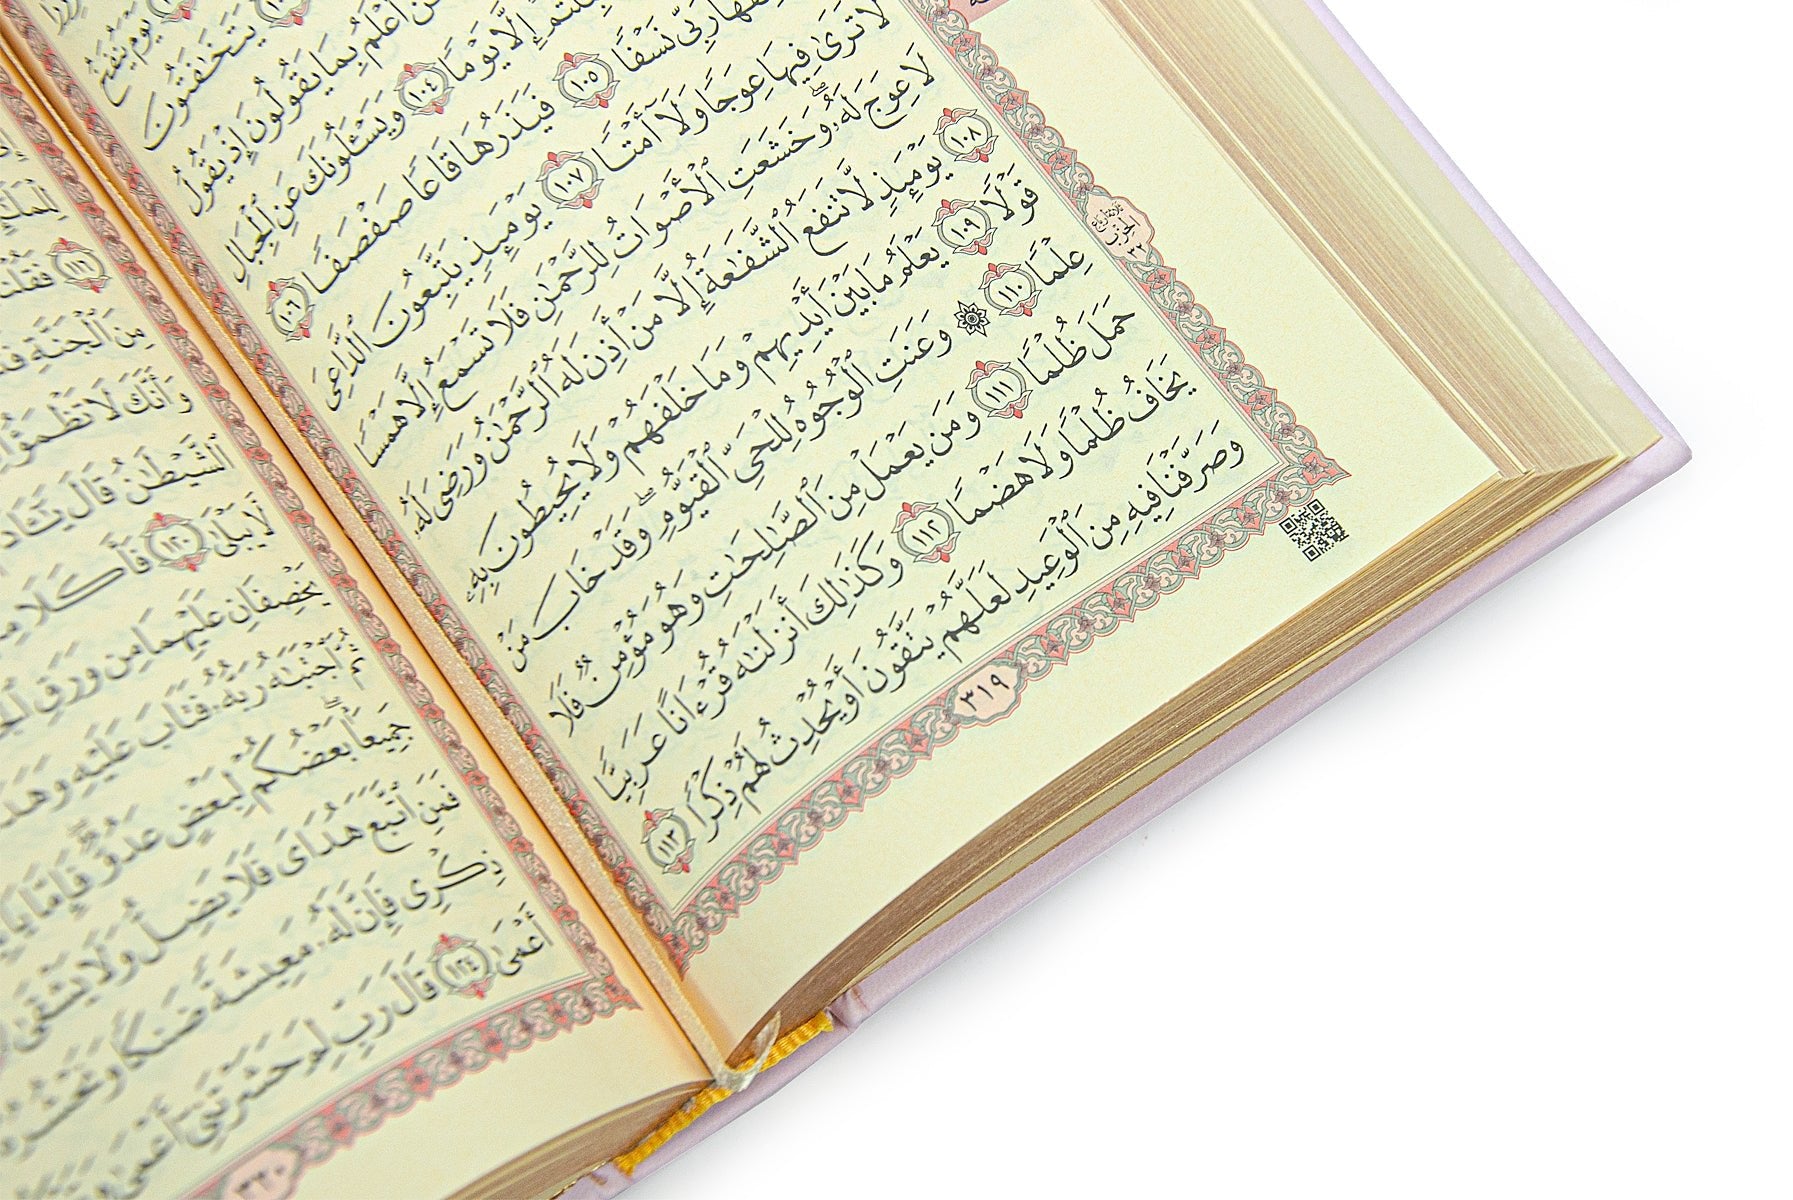 يَوْمَ يُنفَخُ
يَتَخَٰفَتُونَ
أَعْلَمُ بِمَا يَقُولُونَ إِذْ يَقُولُ
إِلَّا يَوْمًا ١٠٤ وَيَسْـَٔلُونَكَ عَنِ ٱلْجِبَالِ
رَبِّى نَسْفًا ١٠٥ فَيَذَرُهَا قَاعًا صَفْصَفًا ١٠٦
لَّا تَرَىٰ فِيهَا عِوَجًا وَلَآ أَمْتًا ١٠٧ يَوْمَئِذٍ يَتَّبِعُونَ ٱلدَّاعِىَ
لَا عِوَجَ لَهُۥ ۖ وَخَشَعَتِ ٱلْأَصْوَاتُ لِلرَّحْمَٰنِ فَلَا تَسْمَعُ إِلَّا هَمْسًا
١٠٨ يَوْمَئِذٍ لَّا تَنفَعُ ٱلشَّفَٰعَةُ إِلَّا مَنْ أَذِنَ لَهُ ٱلرَّحْمَٰنُ وَرَضِىَ لَهُۥ
قَوْلًا ١٠٩ يَعْلَمُ مَا بَيْنَ أَيْدِيهِمْ وَمَا خَلْفَهُمْ وَلَا يُحِيطُونَ بِهِۦ
عِلْمًا ١١٠ ۞ وَعَنَتِ ٱلْوُجُوهُ لِلْحَىِّ ٱلْقَيُّومِ ۖ وَقَدْ خَابَ مَنْ
حَمَلَ ظُلْمًا ١١١ وَمَن يَعْمَلْ مِنَ ٱلصَّٰلِحَٰتِ وَهُوَ مُؤْمِنٌ فَلَا
يَخَافُ ظُلْمًا وَلَا هَضْمًا ١١٢ وَكَذَٰلِكَ أَنزَلْنَٰهُ قُرْءَانًا عَرَبِيًّا
وَصَرَّفْنَا فِيهِ مِنَ ٱلْوَعِيدِ لَعَلَّهُمْ يَتَّقُونَ أَوْ يُحْدِثُ لَهُمْ ذِكْرًا ١١٣
ٱلْحِزْب
٣٢
٣١٩
١١٦ فَقُلْنَا
مِنَ ٱلْجَنَّةِ
وَأَنَّكَ لَا تَظْمَؤُا۟
ٱلشَّيْطَٰنُ قَالَ يَٰٓـَٔادَمُ
لَّا يَبْلَىٰ ١٢٠ فَأَكَلَا
يَخْصِفَانِ عَلَيْهِمَا مِن وَرَقِ
ثُمَّ ٱجْتَبَٰهُ رَبُّهُۥ فَتَابَ عَلَيْهِ وَهَدَىٰ
جَمِيعًۢا ۖ بَعْضُكُمْ لِبَعْضٍ عَدُوٌّ ۖ فَإِمَّا
فَمَنِ ٱتَّبَعَ هُدَاىَ فَلَا يَضِلُّ وَلَا يَشْقَىٰ
ذِكْرِى فَإِنَّ لَهُۥ مَعِيشَةً ضَنكًا وَنَحْشُرُهُۥ
أَعْمَىٰ ١٢٤ قَالَ رَبِّ لِمَ حَشَرْتَنِىٓ أَعْمَىٰ
٣٢٠